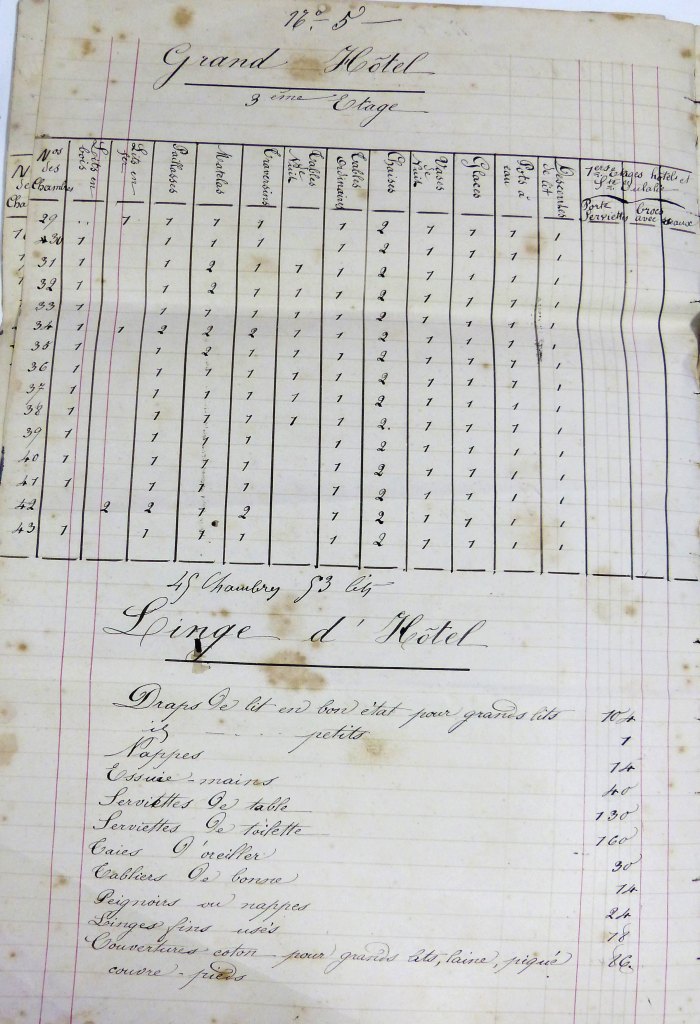 No. 5
Grand Hôtel
3ème Etage
Nos des Chambres Lits en bois Lits en fer Paillasses Matelas Traversins Tables de Nuit Tables Ordinaires Chaises Vases de Nuit Glaces Pots à eau Descentes de lit 1ers Etages hôtels et Porte Serviettes brocs avec seaux
29 1 1 1 1 1 2 1 1 1 1
30 1 1 1 1 1 2 1 1 1 1
31 1 1 2 1 1 1 2 1 1 1 1
32 1 1 2 1 1 1 2 1 1 1 1
33 1 1 1 1 1 1 2 1 1 1 1
34 1 1 2 2 2 1 1 2 1 1 1 1
35 1 1 2 1 1 1 2 1 1 1 1
36 1 1 1 1 1 1 2 1 1 1 1
37 1 1 1 1 1 1 2 1 1 1 1
38 1 1 1 1 1 1 2 1 1 1 1
39 1 1 1 1 1 2 1 1 1 1
40 1 1 1 1 1 2 1 1 1 1
41 1 1 1 1 1 2 1 1 1 1
42 2 2 1 2 1 2 1 1 1 1
43 1 1 1 1 1 2 1 1 1 1
45 Chambres 53 lits
Linge d'Hôtel
Draps de lit en bon état pour grands lits 104
id petits 1
Nappes 14
Essuie-mains 40
Serviettes de table 130
Serviettes de toilette 160
Taies d'oreiller 30
Tabliers de bonne 14
Peignoirs ou nappes 24
Linges fins usés 18
Couvertures coton pour grands lits, laine, piqué 86
couvre-pieds